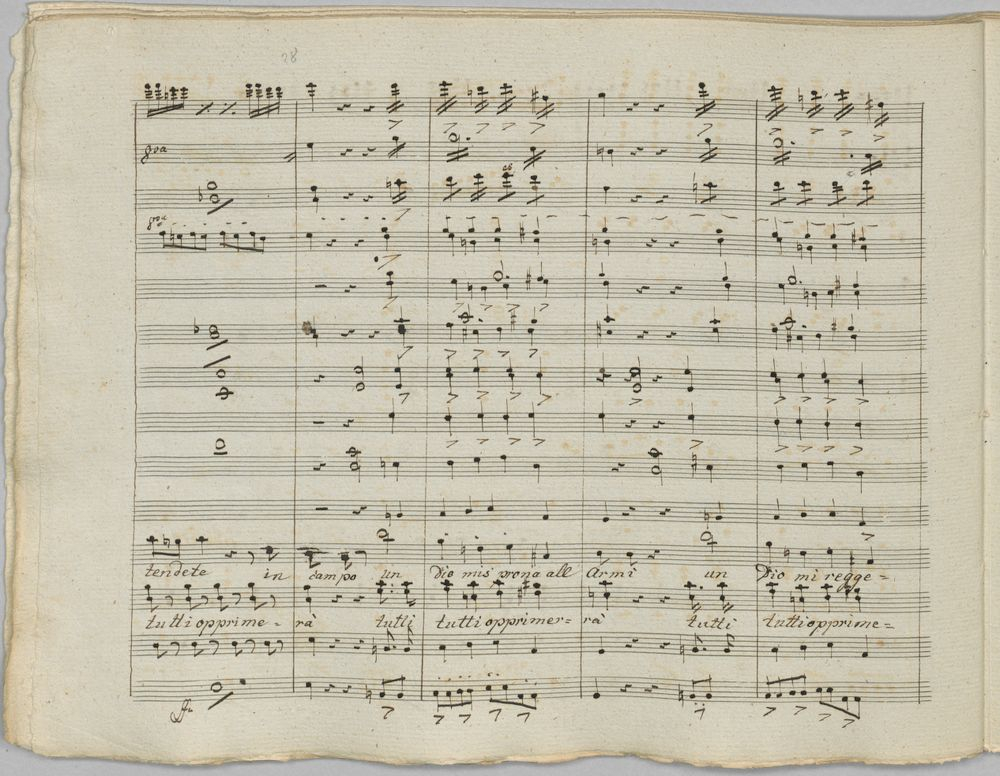 28
8va
8va
tendete in campo un Dio mi sprona all Armi un Dio mi regge=
tutti opprime-rà tutti tutti opprimer=rà tutti tutti opprime=